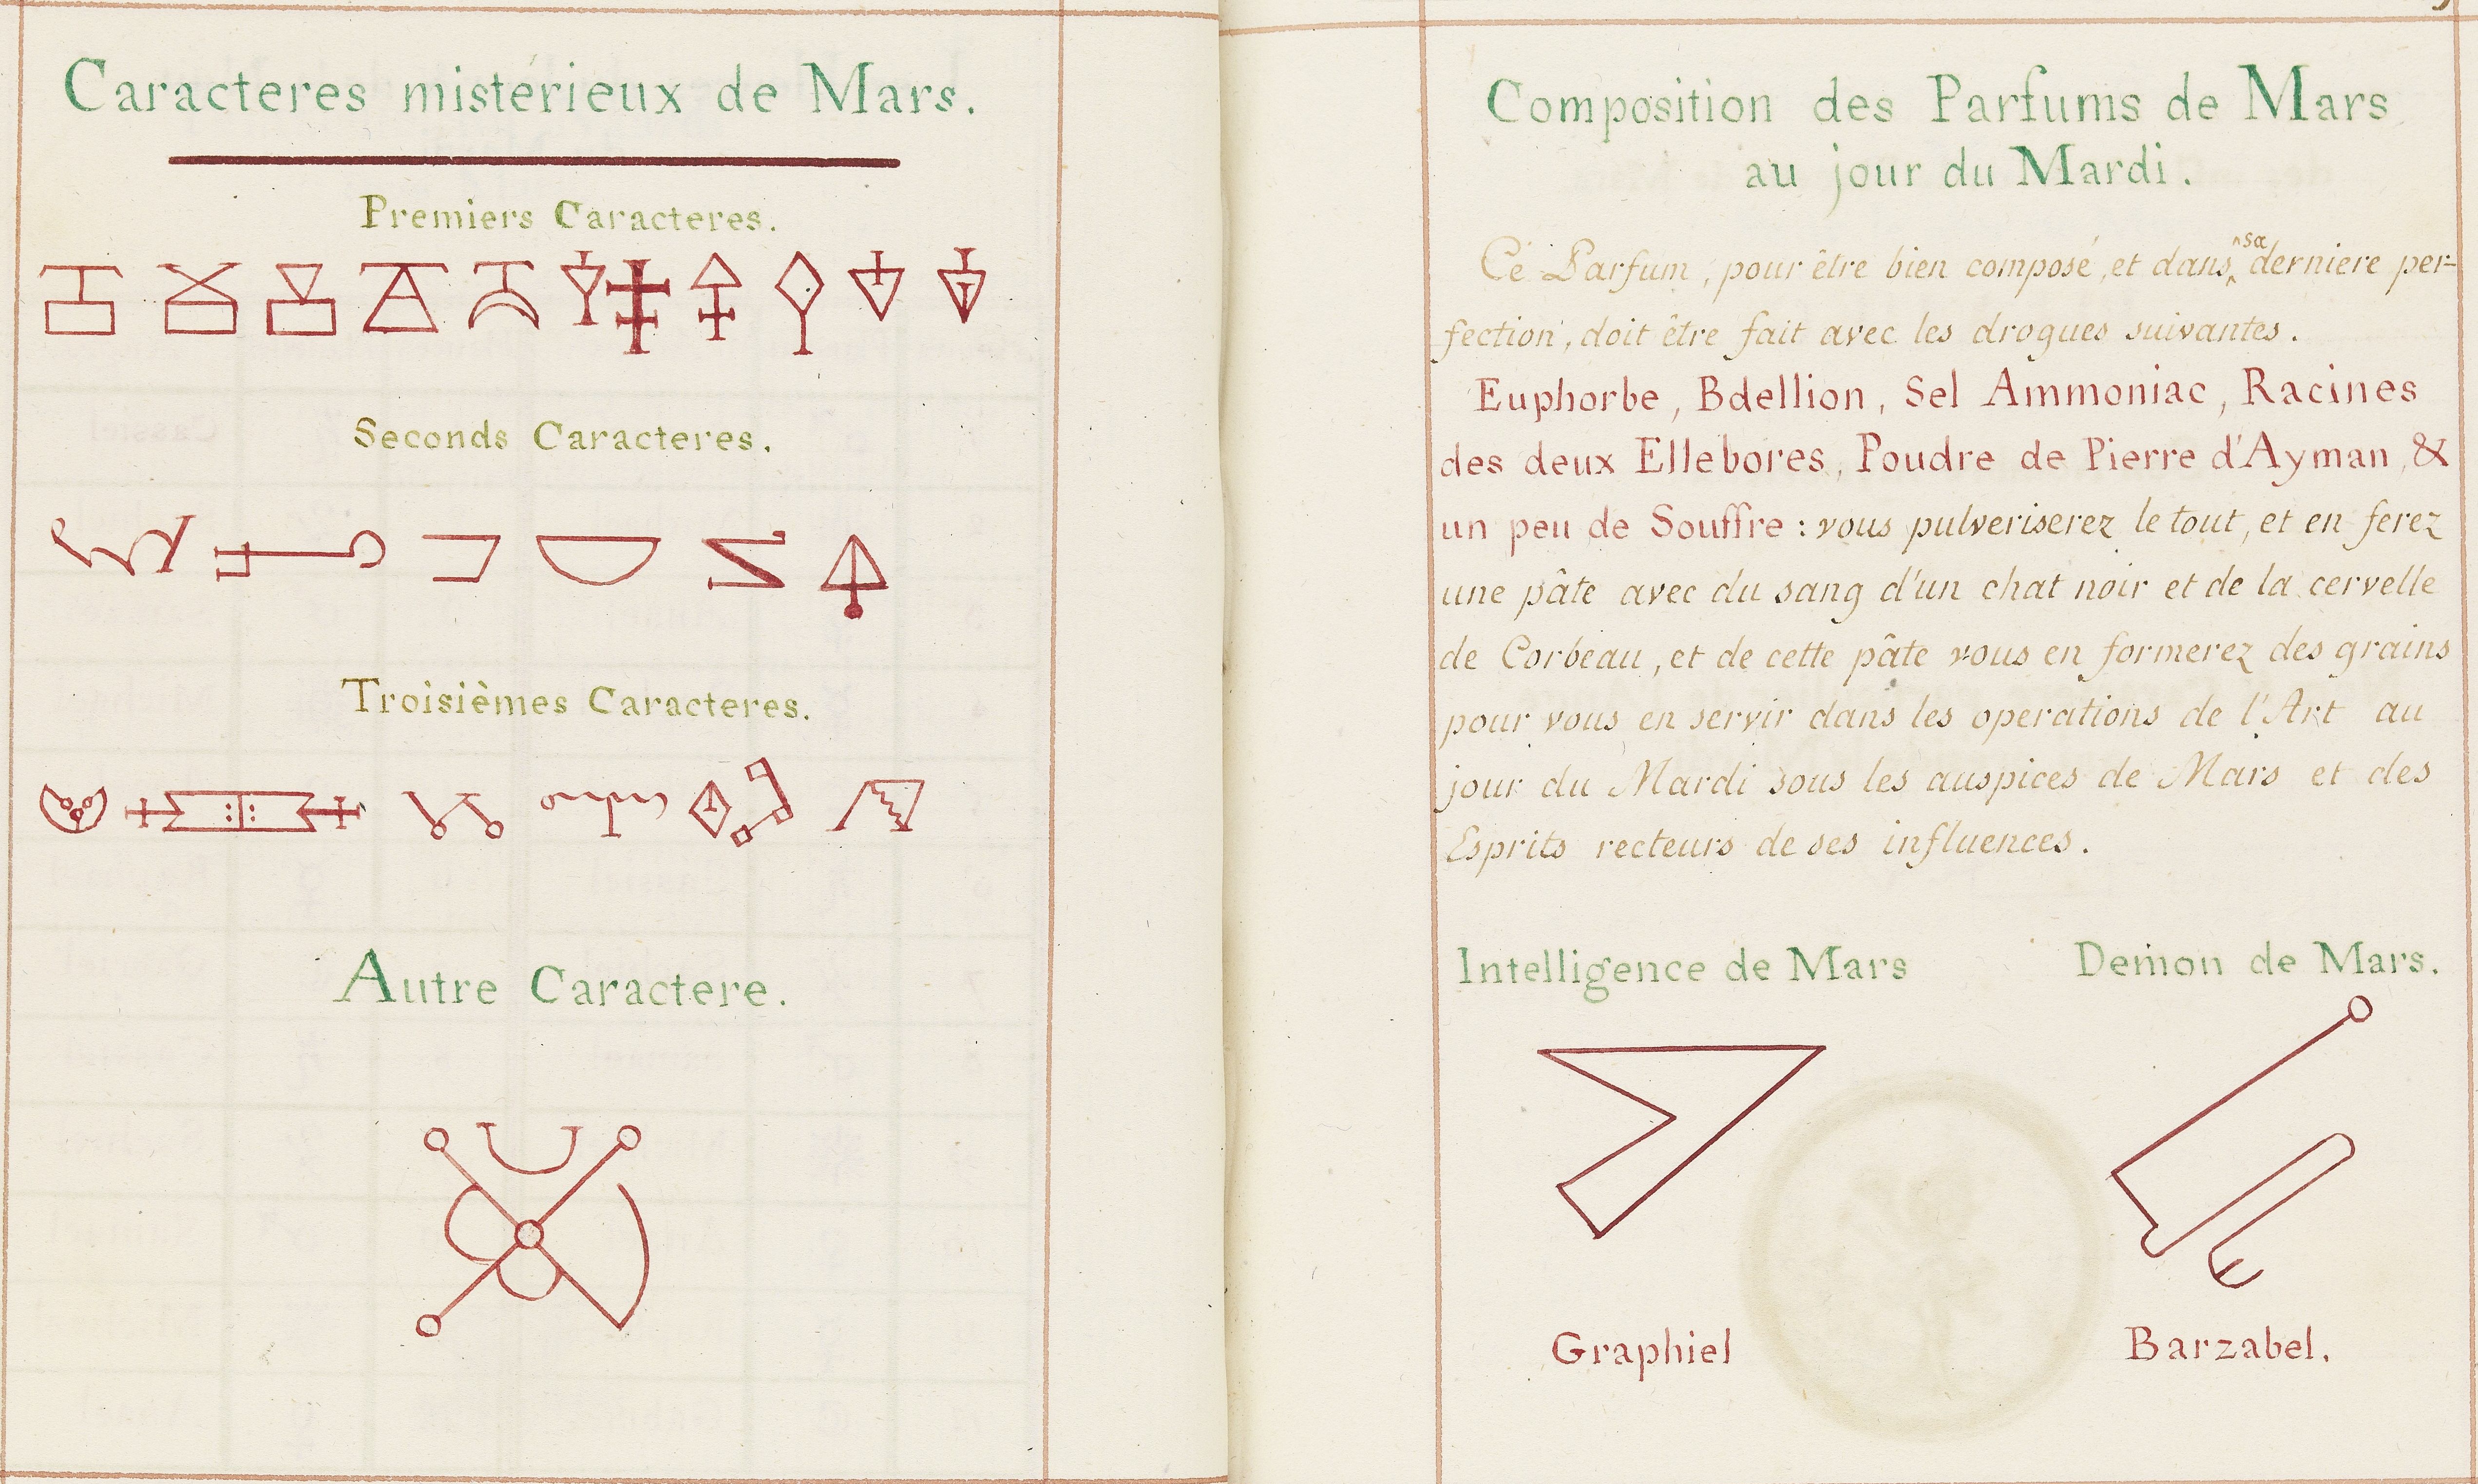 Caracteres mistérieux de Mars.
Premiers Caracteres.
Seconds Caracteres.
Troisièmes Caracteres.
Autre Caractere.
Composition des Parfums de Mars
au jour du Mardi.
Ce Parfum, pour être bien composé, et dans sa derniere per-
fection, doit être fait avec les drogues suivantes.
Euphorbe, Bdellion, Sel Ammoniac, Racines
des deux Ellebores, Poudre de Pierre d'Ayman, &
un peu de Souffre : vous pulveriserez le tout, et en ferez
une pâte avec du sang d'un chat noir et de la cervelle
de Corbeau, et de cette pâte vous en formerez des grains
pour vous en servir dans les operations de l'Art au
jour du Mardi sous les auspices de Mars et des
Esprits recteurs de ses influences.
Intelligence de Mars
Demon de Mars.
Graphiel
Barzabel.